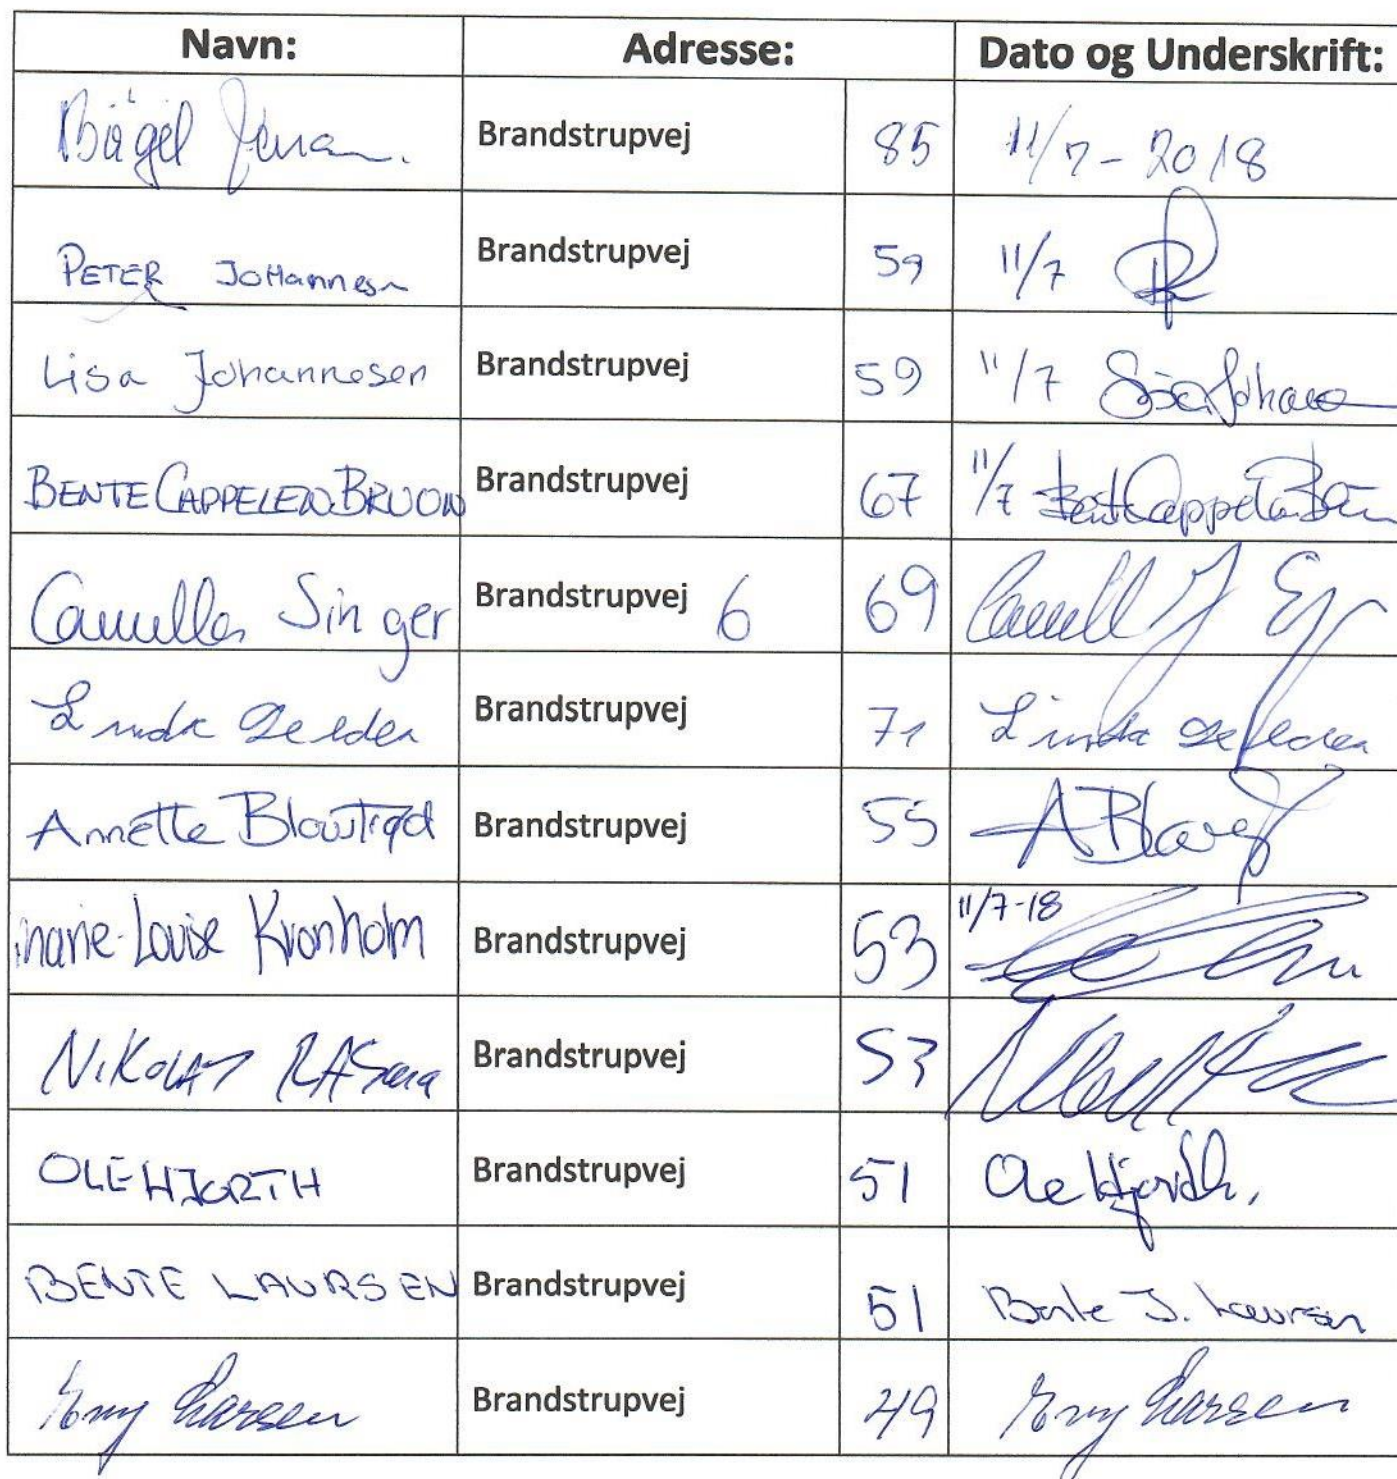 Navn: Adresse: Dato og Underskrift:
Brandstrupvej 85 11/7-2018
PETER Johannesn Brandstrupvej 59 11/7
Lisa Johannesen Brandstrupvej 59 11/7
BENTE CAPPELEN BRUON Brandstrupvej 67 11/7 Cappelen
Camilla Singer Brandstrupvej 6 69
Linda Brandstrupvej 71 Linda
Annette Brandstrupvej 55
marie-Louise Kronholm Brandstrupvej 53 11/7-18
Brandstrupvej 53
OLE HJORTH Brandstrupvej 51 Ole Hjorth.
BENTE LAURSEN Brandstrupvej 51 Bente J. Laursen
Emy Larsen Brandstrupvej 49 Emy Larsen